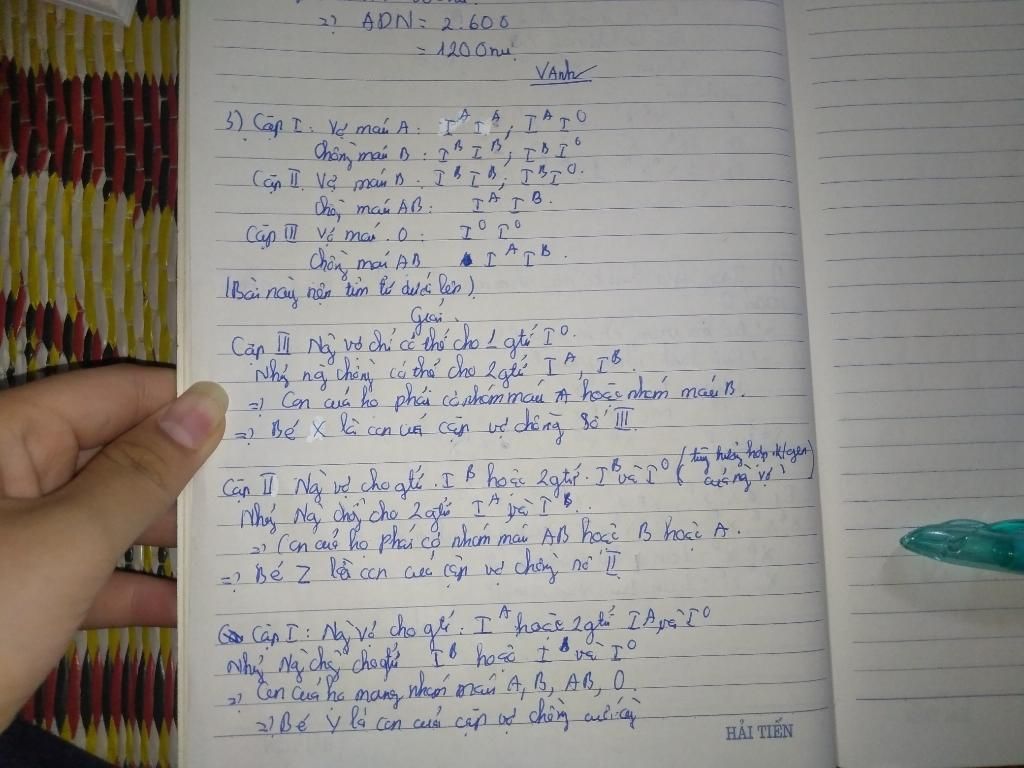 =) ADN = 2.600
= 1200nu.
VAnh
3) Cặp I: Vợ máu A: I^A I^A, I^A I^O
Chồng máu B: I^B I^B, I^B I^O
Cặp II. Vợ máu B: I^B I^B; I^B I^O.
Chồg máu AB: I^A I^B.
Cặp III Vợ máu O: I^O I^O
Chồng máu AB I^A I^B.
(Bài này nên tìm từ dưới lên)
Giải.
Cặp III Ng` vợ chỉ có thể cho 1 gtử I^O.
Nhưg ng` chồng có thể cho 2 gtử I^A, I^B.
=) Con của họ phải có nhóm máu A hoặc nhóm máu B.
=) Bé X là con của cặp vợ chồng số III.
Cặp II Ng` vợ cho gtử I^B hoặc 2 gtử I^B và I^O (
của ng` vợ)
Nhưg Ng` chồg cho 2 gtử I^A và I^B.
=) Con của họ phải có nhóm máu AB hoặc B hoặc A.
=) Bé Z là con của cặp vợ chồng số II
Cặp I: Ng` vợ cho gtử: I^A hoặc 2 gtử I^A và I^O
Nhưg Ng` chồg cho gtử I^B hoặc I^B và I^O
=) Con của họ mang nhóm máu A, B, AB, O.
=) Bé Y là con của cặp vợ chồng cuối cùg
HẢI TIẾN